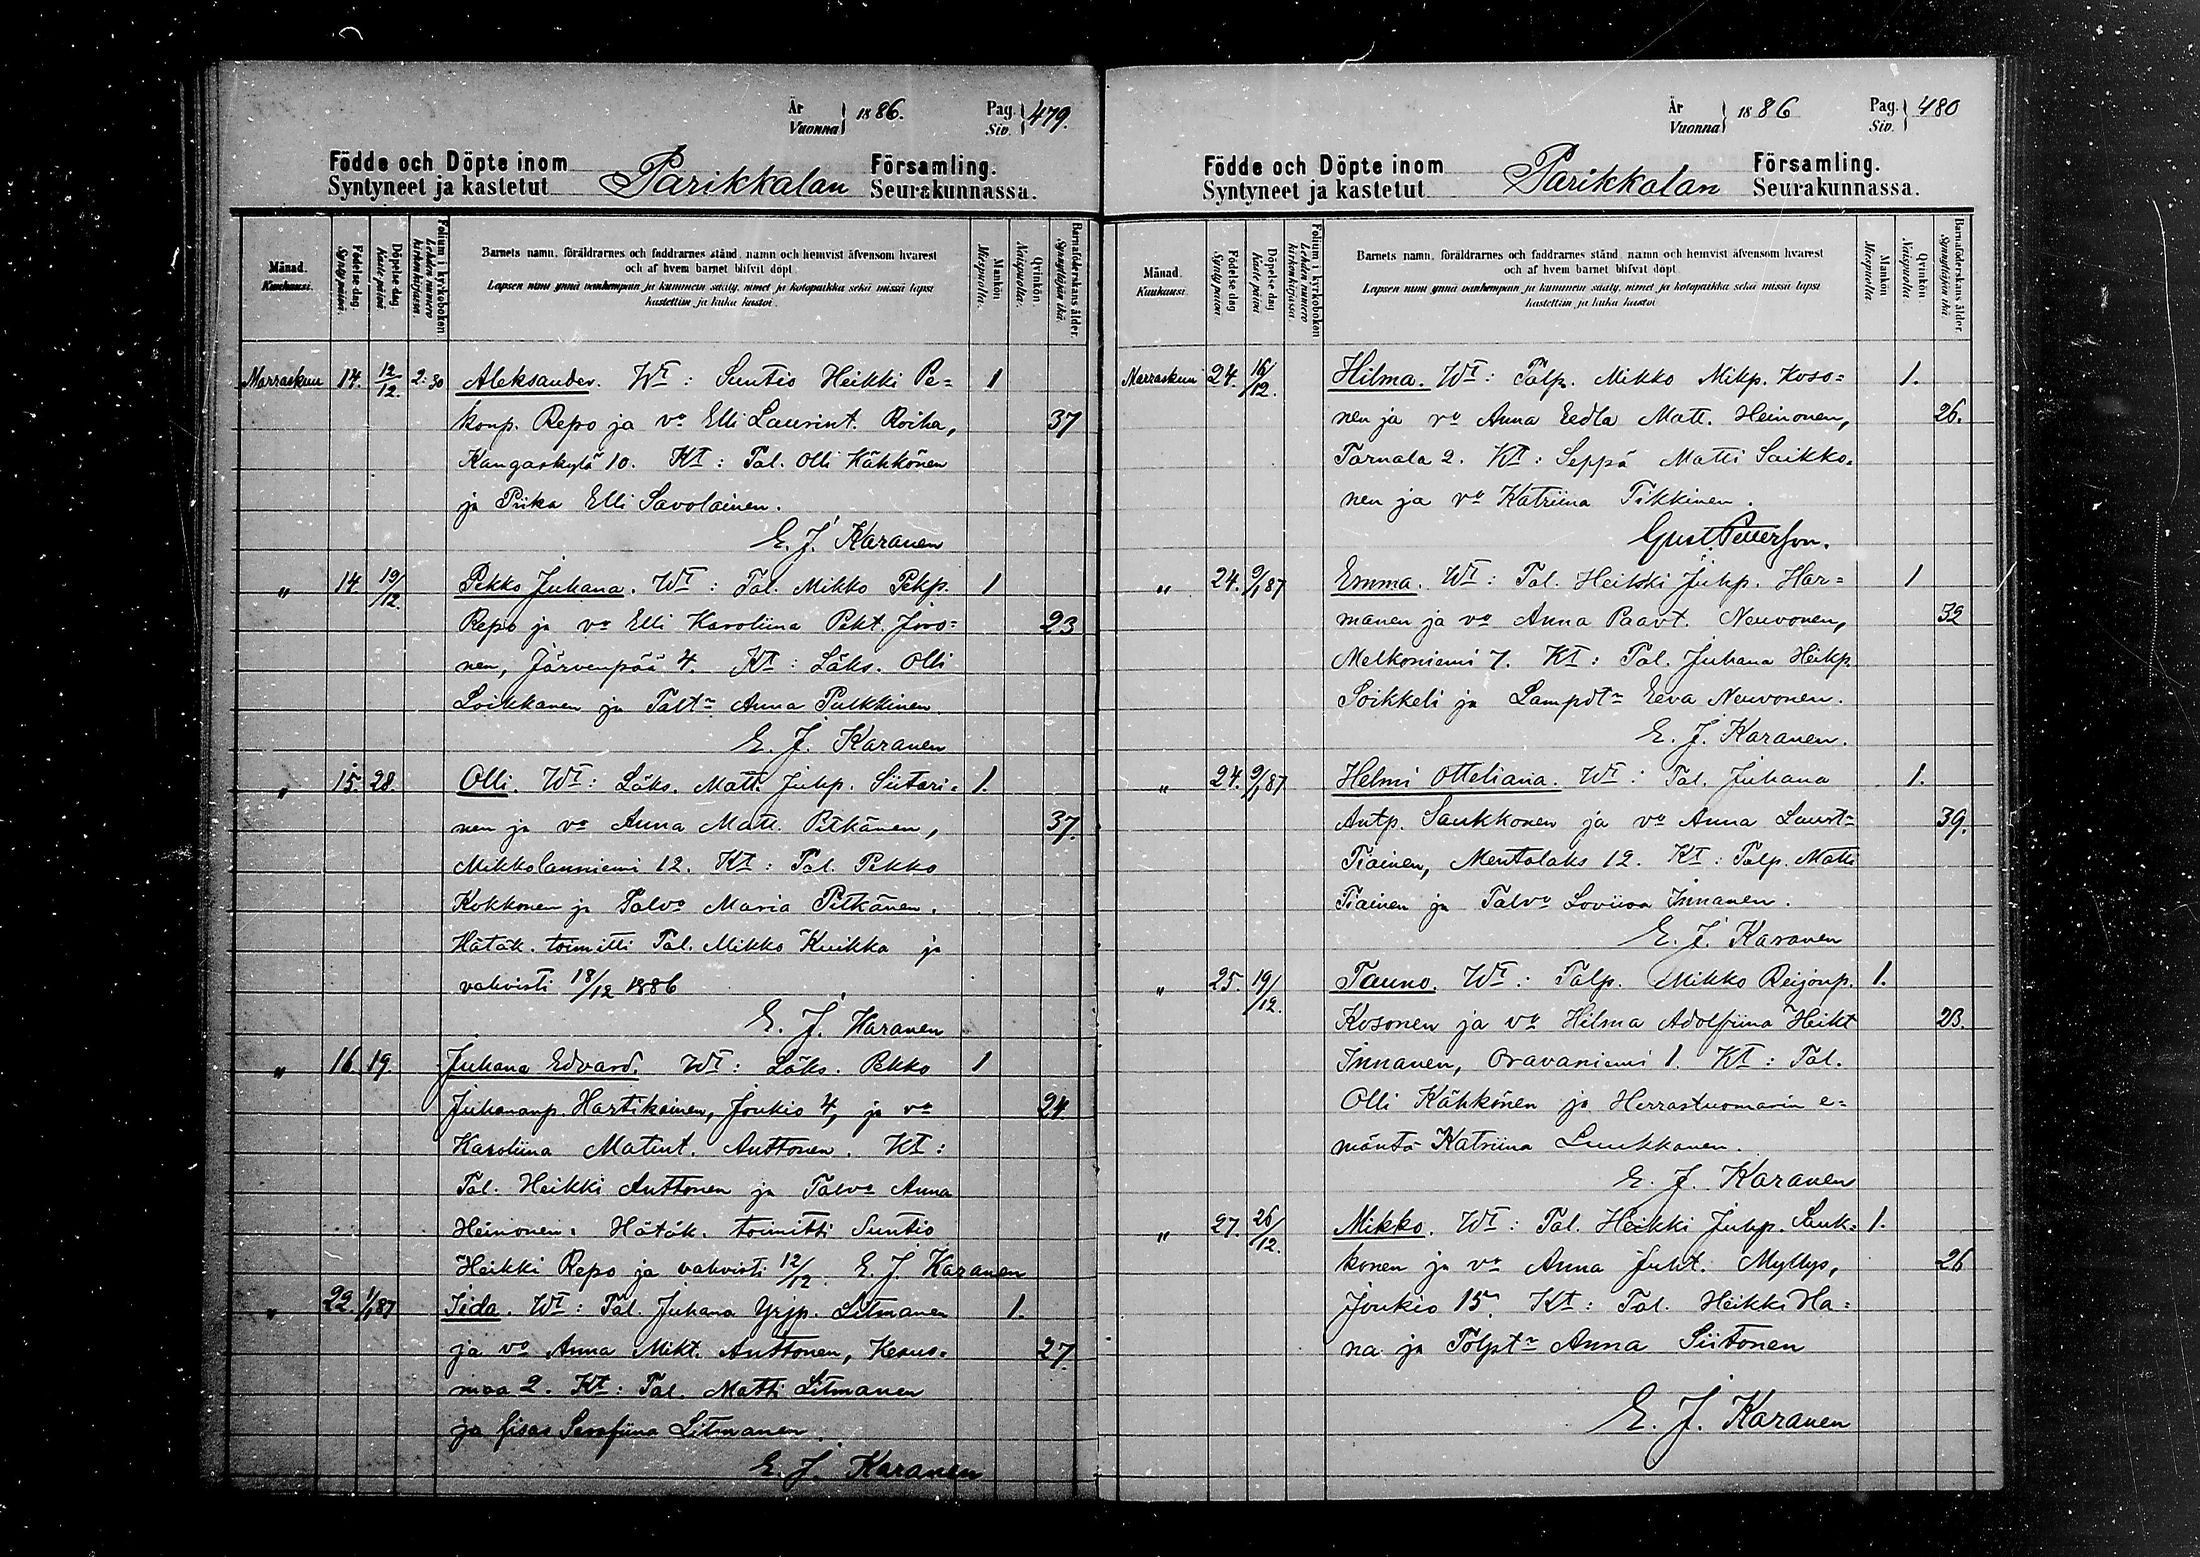 År
Vuonna } 1886.
Pag.
Siv. } 479.
Födde och Döpte inom Parikkalan Församling.
Syntyneet ja kastetut Seurakunnassa.
Månad. Kuukausi.
Födelse dag. Synty päivä.
Döpelse dag. Kaste päivä.
Folium i kyrkoboken Lehden numero kirkonkirjassa.
Barnets namn, föräldrarnes och faddrarnes stånd, namn och hemvist äfvensom hvarest
och af hvem barnet blifvit döpt.
Lapsen nimi ynnä vanhempain ja kummein sääty, nimet ja kotopaikka sekä missä lapsi
kastettiin ja kuka kastoi.
Mankön Miespuolia.
Qvinkön. Naispuolia.
Barnaföderskans ålder. Synnyttäjän ikä.
Marraskuu 14. 12/12. 2:30 Aleksander. Wt: Suntio Heikki Pe= 1
konp. Repo ja vo Elli Laurint. Roiha, 37
Kangaskylä 10. Kt: Tal. Olli Kähkönen
ja Piika Elli Savolainen.
E. J. Karanen
" 14. 19/12. Pekko Juhana. Wt: Tal. Mikko Pekp. 1
Repo ja vo Elli Karoliina Pekt. Joro= 23
nen, Järvenpää 4. Kt: Läks. Olli
Loikkanen ja Talt:r Anna Pulkkinen.
E. J. Karanen
" 15. 28. Olli. Wt: Läks. Matti Juhp. Siitari= 1.
nen ja vo Anna Matt. Pitkänen, 37.
Mikkolanniemi 12. Kt: Tal. Pekko
Kokkonen ja Talvo Maria Pitkänen.
Hätäk. toimitti Tal. Mikko Kuikka ja
vahvisti 18/12 1886
E. J. Karanen
" 16. 19. Juhana Edvard. Wt: Läks. Pekko 1
Juhananp. Hartikainen, Joukio 4, ja vo 24
Karoliina Matint. Anttonen. Kt:
Tal. Heikki Anttonen ja Talvo Anna
Heinonen. Hätäk. toimitti Suntio
Heikki Repo ja vahvisti 12/12. E. J. Karanen
" 22. 1/1 87 Iida. Wt: Tal. Juhana Yrjp. Litmanen 1.
ja vo Anna Mikt. Anttonen, Kesus= 27.
maa 2. Kt: Tal. Matti Litmanen
ja sisar Serafiina Litmanen.
E. J. Karanen
År
Vuonna } 1886
Pag.
Siv. } 480
Födde och Döpte inom Parikkalan Församling.
Syntyneet ja kastetut Seurakunnassa.
Månad. Kuukausi.
Födelse dag Synty päivä.
Döpelse dag Kaste päivä
Folium i kyrkoboken Lehden numero kirkonkirjassa.
Barnets namn, föräldrarnes och faddrarnes stånd, namn och hemvist äfvensom hvarest
och af hvem barnet blifvit döpt.
Lapsen nimi ynnä vanhempain ja kummein sääty, nimet ja kotopaikka sekä missä lapsi
kastettiin ja kuka kastoi.
Mankön Miespuolia.
Qvinkön Naispuolia.
Barnaföderskans ålder. Synnyttäjän ikä.
Marraskuu 24. 16/12. Hilma. Wt: Talp. Mikko Mikp. Koso= 1.
nen ja vo Anna Eedla Matt. Heinonen, 26.
Tarnala 2. Kt: Seppä Matti Saikko=
nen ja vo Katriina Tikkinen.
Gust. Petterson.
" 24. 9/1 87 Emma. Wt: Tal. Heikki Juhp. Har= 1
manen ja vo Anna Paavt. Neuvonen, 32
Melkoniemi 7. Kt: Tal. Juhana Heikp.
Soikkeli ja Lampdtr Eeva Neuvonen.
E. J. Karanen.
" 24. 9/1 87 Helmi Otteliana. Wt: Tal. Juhana 1.
Antp. Saukkonen ja vo Anna Laurt. 39.
Tiainen, Mentalaks 12. Kt: Talp. Matti
Tiainen ja Talvo Loviisa Innanen.
E. J. Karanen
" 25. 19/12. Tauno. Wt: Talp. Mikko Reijonp. 1.
Kosonen ja vo Hilma Adolfiina Heikt. 23.
Innanen, Oravaniemi 1. Kt: Tal.
Olli Kähkönen ja Herrastuomarin e=
mäntä Katriina Luukkanen.
E. J. Karanen
" 27. 26/12. Mikko. Wt: Tal. Heikki Juhp. Sauk= 1.
konen ja vo Anna Juht. Myllys, 26
Joukio 15. Kt: Tal. Heikki Ha=
na ja Tolptr Anna Siitonen
E. J. Karanen